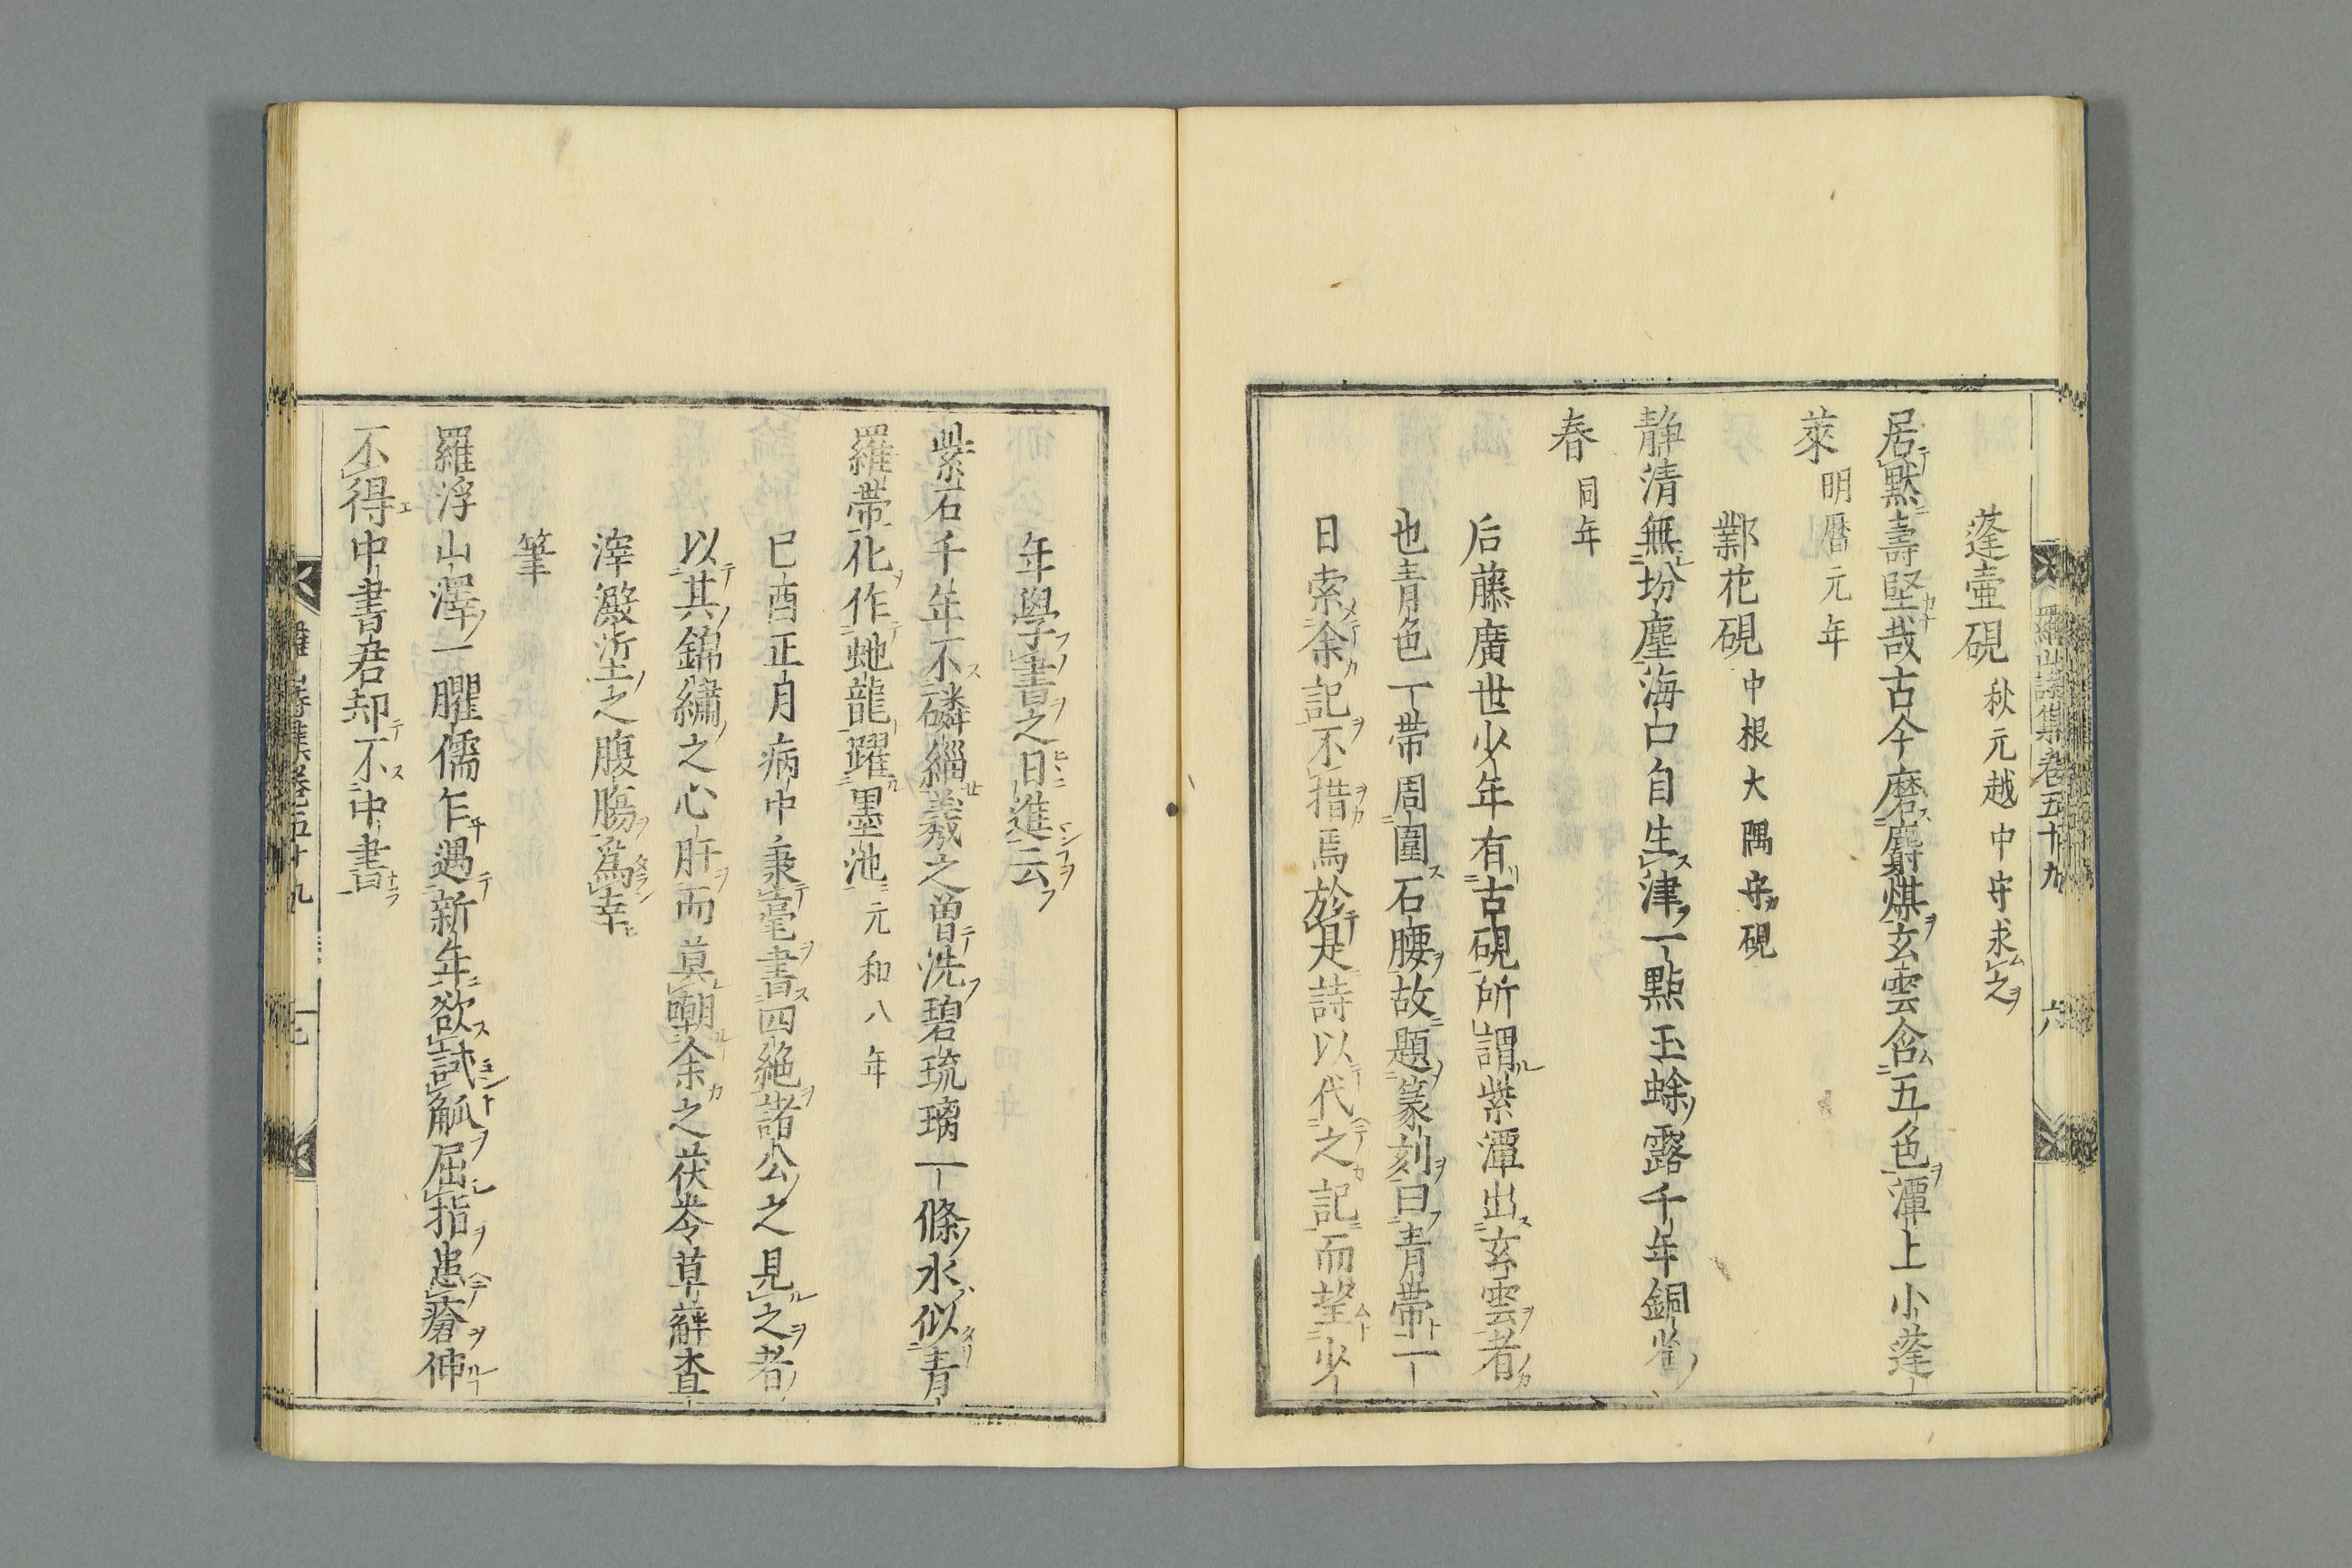 羅山詩集卷五十九 六
蓬壷硯 秋元越中守求之
居黙壽堅哉古今磨麝煤玄雲含五色潭上小蓬
萊 明曆元年
鄴花硯 中根大隅守硯
静清無坋塵海口自生津一點玉蜍露千年銅雀
春 同年
后藤廣世少年有古硯所謂紫潭出玄雲者
也青色一帶周圍石腰故題篆刻曰青帶一
日索余記不措焉於是詩以代之記而望少
年學書之日進云
紫石千年不磷緇羲之曽洗碧琉璃一條水似青
羅帶化作虵龍躍墨池 元和八年
己酉正月病中秉毫書四絶諸公之見之者
以其錦繡之心肝而莫嘲余之茯苓草蘚查
滓澱垽之膓腹爲幸
筆
羅浮山澤一臞儒乍遇新年欲試觚屈指患瘡伸
不得中書君却不中書
羅山詩集卷五十九 七